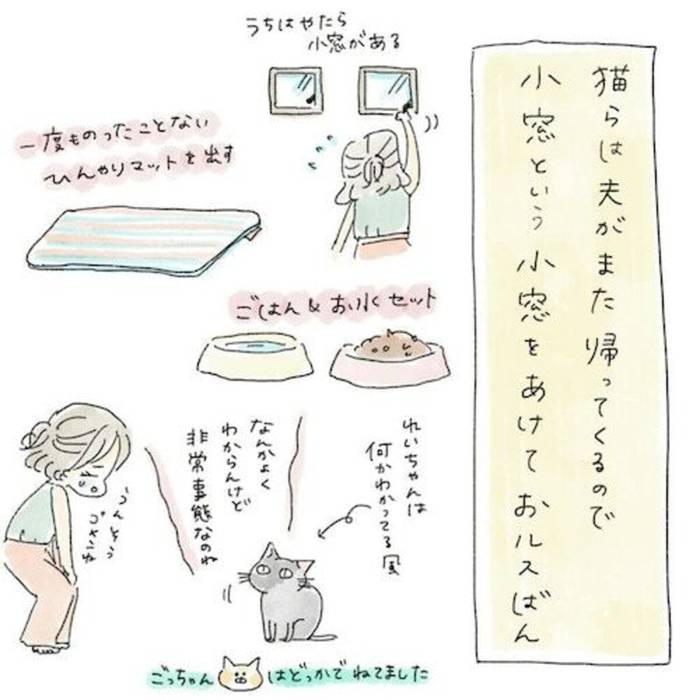 猫らは夫がまた帰ってくるので
小窓という小窓をあけておルスばん
うちはやたら
小窓がある
一度ものったことない
ひんやりマットを出す
ごはん&お水セット
れいちゃんは
何かわかってる風
なんかよく
わからんけど
非常事態なのね
うんとう
ゴメンね
ごっちゃん
はどっかでねてました